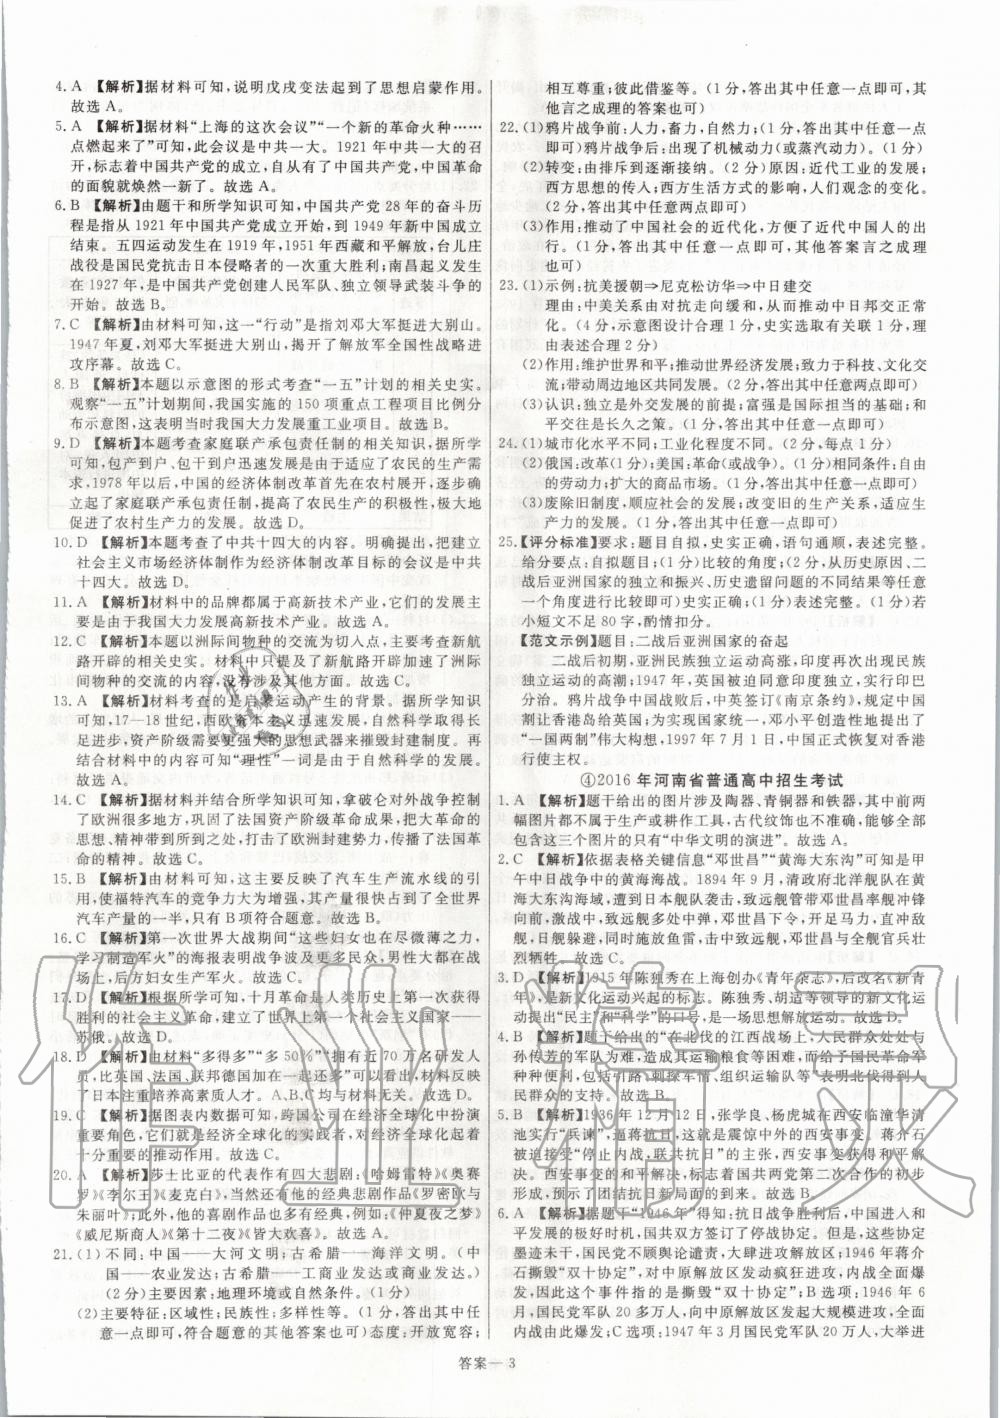 4. A 【解析】据材料可知，说明戊戌变法起到了思想启蒙作用。
故选 A。
5. A 【解析】据材料“上海的这次会议”“一个新的革命火种……
点燃起来了”可知，此会议是中共一大。1921 年中共一大的召
开，标志着中国共产党的成立，自从有了中国共产党，中国革命
的面貌就焕然一新了。故选 A。
6. B 【解析】由题干和所学知识可知，中国共产党 28 年的奋斗历
程是指从 1921 年中国共产党成立开始，到 1949 年新中国成立
结束。五四运动发生在 1919 年，1951 年西藏和平解放，台儿庄
战役是国民党抗击日本侵略者的一次重大胜利；南昌起义发生
在 1927 年，是中国共产党创建人民军队、独立领导武装斗争的
开始。故选 B。
7. C 【解析】由材料可知，这一“行动”是指刘邓大军挺进大别山。
1947 年夏，刘邓大军挺进大别山，揭开了解放军全国性战略进
攻序幕。故选 C。
8. B 【解析】本题以示意图的形式考查“一五”计划的相关史实。
观察“一五”计划期间，我国实施的 150 项重点工程项目比例分
布示意图，这表明当时我国大力发展重工业项目。故选 B。
9. D 【解析】本题考查家庭联产承包责任制的相关史实，据所学
可知，包产到户、包干到户迅速发展是由于适应了农民的生产需
求。1978 年以后，中国的经济体制改革首先在农村展开，逐步确
立起了家庭联产承包责任制，提高了农民生产的积极性，极大地
促进了农村生产力的发展。故选 D。
10. D 【解析】本题考查了中共十四大的内容。明确提出，把建立
社会主义市场经济体制作为经济体制改革目标的会议是中共
十四大。故选 D。
11. A 【解析】材料中的品牌都属于高新技术产业，它们的发展主
要是由于我国大力发展高新技术产业。故选 A。
12. C 【解析】本题以洲际间物种的交流为切入点，主要考查新航
路开辟的相关史实。材料中只提及了新航路开辟加速了洲际
间物种的交流的内容，没有涉及其他方面。故选 C。
13. A 【解析】材料考查的是启蒙运动产生的背景。据所学知识
可知，17—18 世纪，西欧资本主义迅速发展，自然科学取得长
足进步，资产阶级需要更强大的思想武器来摧毁封建制度。再
结合材料中的内容可知“理性”一词与自然科学的发展有关。
故选 A。
14. C 【解析】据材料并结合所学知识可知，拿破仑对外战争控制
了欧洲很多地方，巩固了法国资产阶级革命成果，把大革命的
思想、精神带到所到之处，打击了欧洲封建势力，传播了法国革
命的精神。故选 C。
15. B 【解析】由材料可知，这主要反映了汽车生产流水线的引
用，使福特汽车的竞争力大为增强，其产量很快占到了全世界
汽车产量的一半，只有 B 项符合题意。故选 B。
16. C 【解析】第一次世界大战期间“这些妇女也在尽微薄之力，
学习制造军火”的海报表明战争波及更多民众，男性大都在战
场上，后方妇女生产军火。故选 C。
17. D 【解析】根据所学可知，十月革命是人类历史上第一次获得
胜利的社会主义革命，建立了世界上第一个社会主义国家——
苏俄。故选 D。
18. D 【解析】由材料“多得多”“多 50%”“拥有近 70 万名研发人
员，比英国、法国、联邦德国加在一起还要多”可知，材料反映了
日本注重培养高素质人才。A、B、C 均与材料无关。故选 D。
19. C 【解析】据图表内数据可知，跨国公司在经济全球化中扮演
重要角色，它们就是经济全球化的实践者，对经济全球化起着
十分重要的推动作用。故选 C。
20. A 【解析】莎士比亚的代表作有四大悲剧：《哈姆雷特》《奥赛
罗》《李尔王》《麦克白》，当然还有他的经典悲剧作品《罗密欧与
朱丽叶》；此外，他的喜剧作品也非常经典，例如：《仲夏夜之梦》
《威尼斯商人》《第十二夜》《皆大欢喜》。故选 A。
21. (1)不同：中国——大河文明；古希腊——海洋文明。(中
国——农业发达；古希腊——工商业发达或商业发达。)
(2 分)主要因素：地理环境或自然条件。(1 分)
(2)主要特征：区域性；民族性；多样性等。(1 分，答出其中任
意一点即可，符合题意的其他答案也可)态度：开放宽容；
相互尊重；和谐共处；彼此借鉴等。(1 分，答出其中任意一点即可，其
他言之成理的答案也可)
22. (1)鸦片战争前：人力，畜力，自然力；(1 分，答出其中任意一点
即可)鸦片战争后：出现了机械动力(或蒸汽动力)。(1 分)
(2)转变：由排斥到逐渐接纳。(2 分)原因：近代工业的发展；
西方思想的传入；西方生活方式的影响，人们观念的变化。
(2 分，答出其中任意两点即可)
(3)作用：推动了中国社会的近代化，方便了近代中国人的出
行。(1 分，答出其中任意一点即可，其他答案言之成理
也可)
23. (1)示例：抗美援朝→尼克松访华→中日建交
理由：中美关系由对抗走向缓和，从而推动了中日邦交正常
化。(4 分，示意图设计合理 1 分，史实选取有关联 1 分，理
由表述合理 2 分)
(2)作用：维护世界和平；推动世界经济发展；致力于科技、文化交
流；带动周边地区共同发展。(2 分，答出其中任意两点即可)
(3)认识：独立是外交发展的前提；富强是国际担当的基础；和
平交往是长久之策。(1 分，答出其中任意一点即可)
24. (1)城市化水平不同；工业化程度不同。(2 分，每点 1 分)
(2)俄国：改革(1 分)；美国：革命(或战争)。(1 分)相同条件：自由
的劳动力；扩大的商品市场。(1 分，答出其中任意一点即可)
(3)废除旧制度，顺应社会的发展；改变旧的生产关系，适应生
产力的发展。(1 分，答出其中任意一点即可)
25. 【评分标准】要求：题目自拟，史实正确，语句通顺，表述完整。
给分要点：自拟题目；(1 分，题目合理即可)能从历史原因、二
战后亚洲国家的独立和振兴、历史遗留问题的不同结果等任意
一个角度进行分析，史实正确，表述完整。(3 分)若
小短文不足 80 字，酌情扣分。
【范文示例】题目：二战后亚洲国家的奋起
二战后初期，亚洲民族独立运动高涨，印度再次出现民族
独立运动的高潮；1947 年，英国被迫同意印度独立，实行印巴
分治。鸦片战争中国战败后，中英签订《南京条约》，规定中国
割让香港岛给英国；为实现国家统一，邓小平创造性地提出了
“一国两制”伟大构想，1997 年 7 月 1 日，中国正式恢复对香港
行使主权。
④2016 年河南省普通高中招生考试
1. A 【解析】题干给出的图片涉及陶器、青铜器和铁器，其中前两
幅图片都不属于生产或耕作工具，古代纹饰也不准确，能够全部
包含这三个图片的只有“中华文明的演进”。故选 A。
2. C 【解析】依据表格关键信息“邓世昌”“黄海大东沟”可知是甲
午中日战争中的黄海海战。1894 年 9 月，清政府北洋舰队在黄
海大东沟海域，遭到日本舰队袭击。致远舰管带邓世昌率舰冲锋
向前，激战中，致远舰多处中弹，邓世昌下令，开足马力，直冲敌
舰，日舰躲避，同时施放鱼雷，击中致远舰，邓世昌与全舰官兵壮
烈牺牲。故选 C。
3. D 【解析】1915 年陈独秀在上海创办《青年杂志》，后改名《新青
年》，是新文化运动兴起的标志。陈独秀、胡适等领导的新文化运
动，突出“民主”和“科学”的口号，是一场思想解放运动。故选 D。
4. B 【解析】题干给出的“在北伐的江西战场上，人民群众处处与
孙传芳的军队为难，造成其运输粮食等困难，而给予国民革命军
种种便利，包括引路、侦探敌情、组织运输队等”表明北伐得到人
民群众的支持。故选 B。
5. B 【解析】1936 年 12 月 12 日，张学良、杨虎城在西安临潼华清
池实行“兵谏”，逼蒋抗日，这就是震惊中外的西安事变。蒋介石
被迫接受“停止内战、联共抗日”的主张，西安事变得以和平解
决。西安事变的和平解决，标志着国共两党第二次合作的初步
形成，预示了团结抗日新局面的到来。故选 B。
6. A 【解析】据题干“1946 年”可得知：抗日战争胜利后，中国进入和
平发展的极好时机，国共双方签订了停战协定，但这些协定
墨迹未干，国民党不顾舆论谴责，大肆挑起内战；1946 年蒋介
石撕毁“双十协定”，对中原解放区发动疯狂进攻，内战全面爆
发，因此这个事件指的是撕毁“双十协定”；B 选项：1946 年 6
月，国民党军队 20 多万人，向中原解放区发起大规模进攻，全面
内战由此爆发；C 选项：1947 年 3 月国民党军队 20 万人，大举进
答案— 3
作业精灵